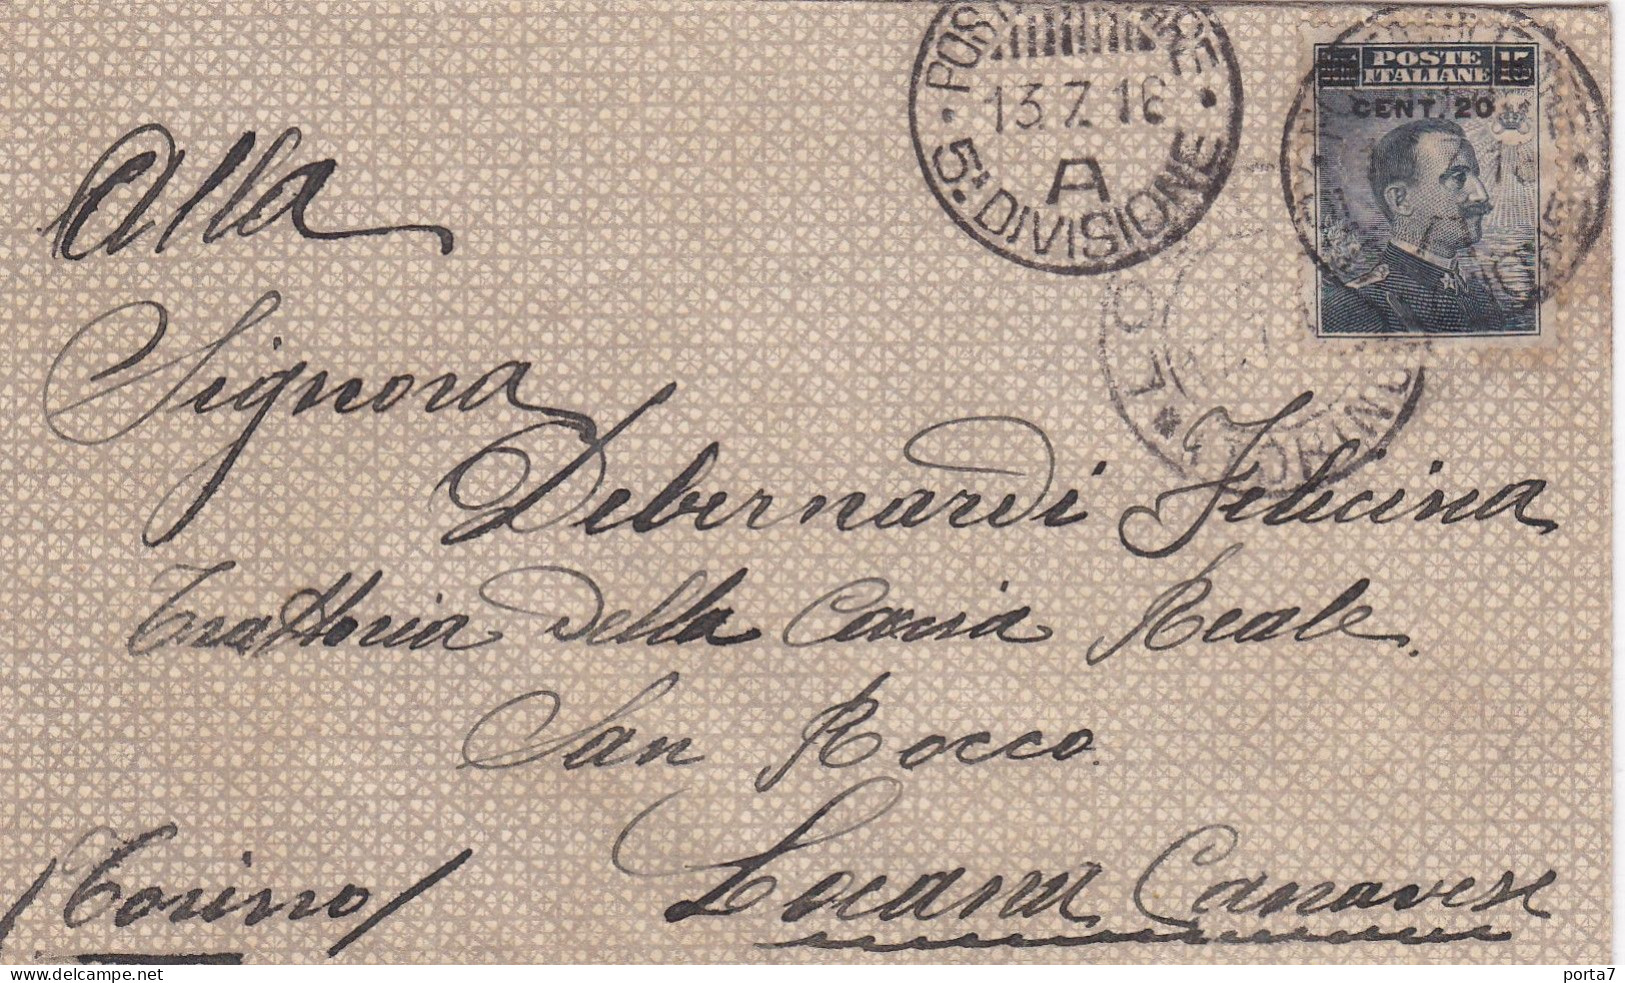 POSTA MILITARE
13.7.16
A
5ª DIVISIONE
POSTE
ITALIANE 15
CENT. 20
Alla
Signora
Debernardi Felicina
Trattoria Della Caccia Reale.
San Rocco
/Torino/ Locana Canavese
porta7